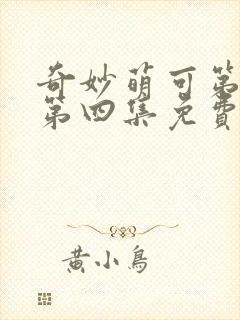 奇妙萌可第
第四集免費
黃小鳥